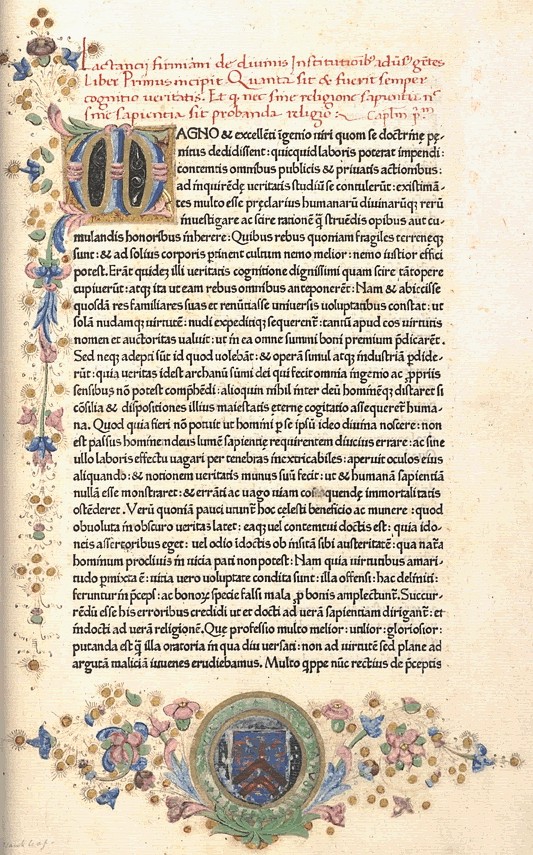 Lactantii firmiani de diuinis Institutioib⁹ adũs⁹ gẽtes
Liber Primus incipit Quanta sit & fuerit semper
cognitio ueritatis. Et q nec sine religione sapientia nᶜ
sine sapientia sit probanda religio. Caplm pᵐ
MAGNO & excellẽti ĩgenio uiri quom se doctrinę pę-
nitus dedidissent: quicquid laboris poterat impendi:
contemtis omnibus publicis & priuatis actionibus:
ad inquirẽdę ueritatis studiũ se contulerũt: existimã-
tes multo esse pręclarius humanarũ diuinarũq; rerũ
inuestigare ac scire rationẽ q̃ struẽdis opibus aut cu-
mulandis honoribus inherere: Quibus rebus quoniam fragiles terreneq;
sunt: & ad solius corporis ptinent cultum nemo melior: nemo iustior effici
potest. Erãt quidez illi ueritatis cognitione dignissimi quam scire tãtopere
cupiuerũt: atq; ita ut eam rebus omnibus anteponerẽt: Nam & abiecisse
quosdã res familiares suas et renũtiasse uniuersis uoluptatibus constat: ut
solã nudamq; uirtutẽ: nudi expeditiq; sequerent̃: tantũ apud eos uirtutis
nomen et auctoritas ualuit: ut in ea omne summi boni premium p̃dicarẽt.
Sed neq; adepti sũt id quod uolebãt: & operã simul atq; industriã pdide-
rũt: quia ueritas idest archanũ sũmi dei qui fecit omnia ingenio ac ꝓpriis
sensibus nõ potest comp̃hẽdi: alioquin nihil inter deũ hominẽq; distaret si
cõsilia & dispositiones illius maiestatis eternę cogitatio assequeret̃ huma-
na. Quod quia fieri nõ potuit ut homini p se ipsũ ideo diuina nosceret: non
est passus hominem deus lumẽ sapientię requirentem diucius errare: ac sine
ullo laboris effectu uagari per tenebras inextricabiles: aperuit oculos eius
aliquando: & notionem ueritatis munus suũ fecit: ut & humanã sapientiã
nullã esse monstraret: & errãti ac uago uiam consequendę immortalitatis
ostẽderet. Verũ quoniã pauci utunt̃ hoc cęlesti beneficio ac munere: quod
obuoluta in obscuro ueritas latet: eaq; uel contemtui doctis est: quia ido-
neis assertoribus eget: uel odio ĩdoctis ob insitã sibi austeritatẽ: quã nat̃a
hominum procliuis in uicia pati non potest: Nam quia uirtutibus amari-
tudo pmixta ẽ: uitia uero uoluptate condita sunt: illa offensi: hac deliniti:
feruntur in p̃ceps: ac bonoꝝ specie falsi mala ꝓ bonis amplectunt̃. Succur-
rẽdũ esse his erroribus credidi ut et docti ad uerã sapientiam dirigant̃: et
indocti ad uerã religionẽ. Quę professio multo melior: utilior: gloriosior:
putanda est q̃ illa oratoria in qua diu uersati: non ad uirtutẽ sed plane ad
argutã maliciã iuuenes erudiebamus. Multo q̃ppe nũc rectius de p̃ceptis